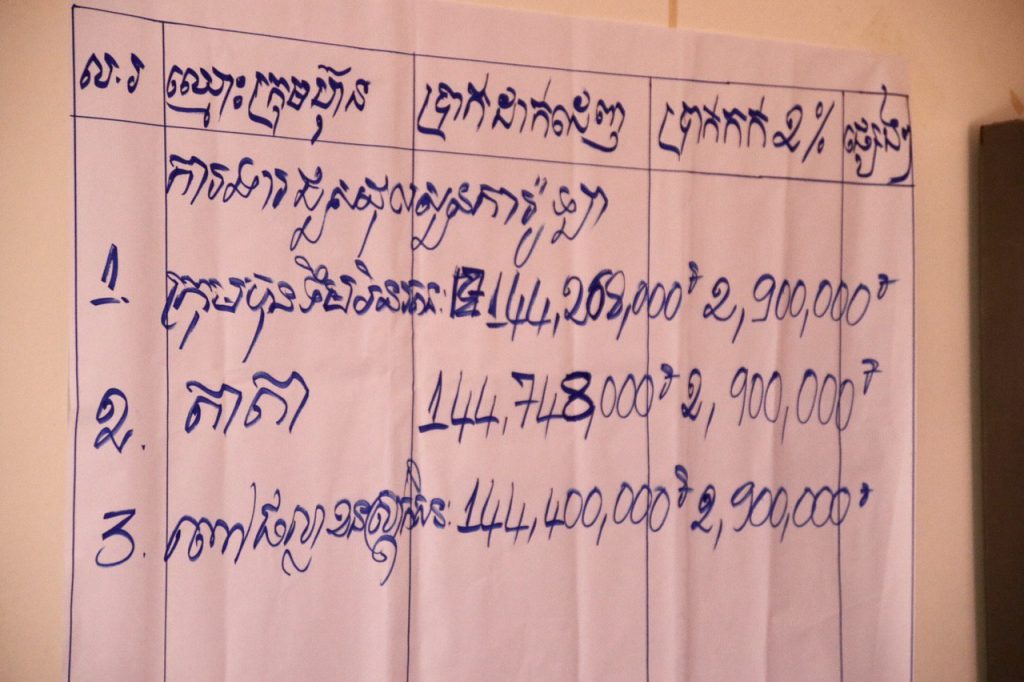 ល.រ ឈ្មោះក្រុមហ៊ុន ប្រាក់ដាក់ដេញ ប្រាក់កក់ 2% ផ្សេងៗ
ការងារជួសជុលសួនការ៉ូឡា
1. ក្រុមហ៊ុន 144,268,000៛ 2,900,000៛
2. តាតា 144,748,000៛ 2,900,000៛
3. 144,400,000៛ 2,900,000៛